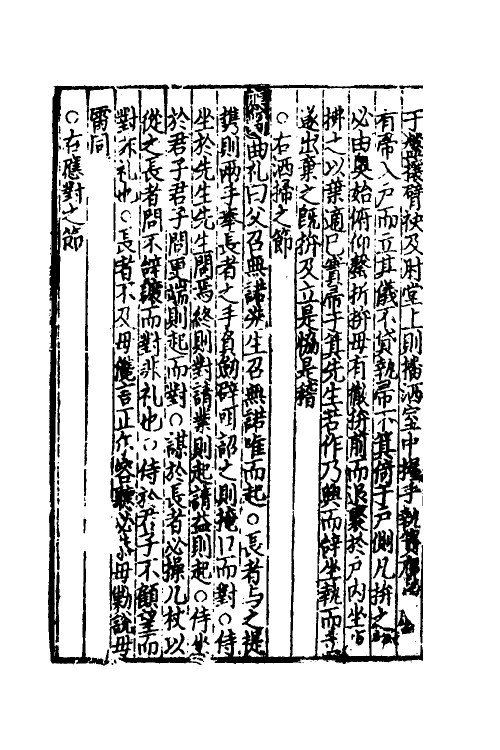 于盤攘臂袂及肘堂上則播洒室中握手執箕膺
有帚入戶而立其儀不貸執帚下箕倚于戶側凡拚之
必由奧始俯仰磬折拚毋有徹拚前而退聚於戶內坐
排之以葉適己實帚于箕先生若作乃興而辞坐執而立
遂出棄之既拚反立是協是稽
○右洒掃之節
曲礼曰父召無諾先生召無諾唯而起○長者与之提
携則兩手奉長者之手負劒辟咡詔之則掩口而對○侍
坐於先生先生問焉終則對請業則起請益則起○侍坐
於君子君子問更端則起而對○謀於長者必操几杖以
從之長者問不辞讓而對非礼也○侍於君子不顧望而
對非礼也○長者不及毋儳言正尓容聽必恭毋勦說毋
雷同
○右應對之節